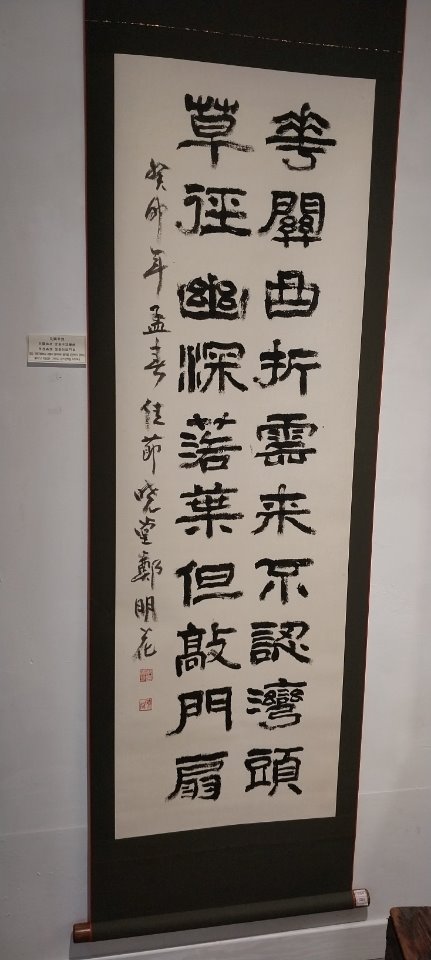 華關曲折雲来不認灣頭
草徑幽深落葉但敲門扇
癸卯年孟春佳節曉堂鄭明花